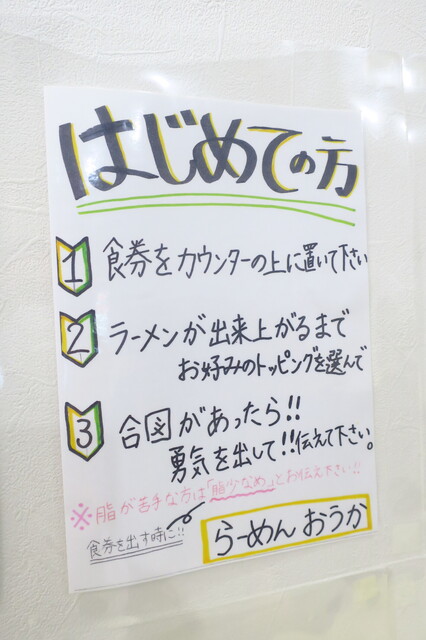 はじめての方
1 食券をカウンターの上に置いて下さい
2 ラーメンが出来上がるまで
お好みのトッピングを選んで
3 合図があったら!!
勇気を出して!!伝えて下さい。
※脂が苦手な方は「脂少なめ」とお伝え下さい!!
食券を出す時に!!
らーめん おうか